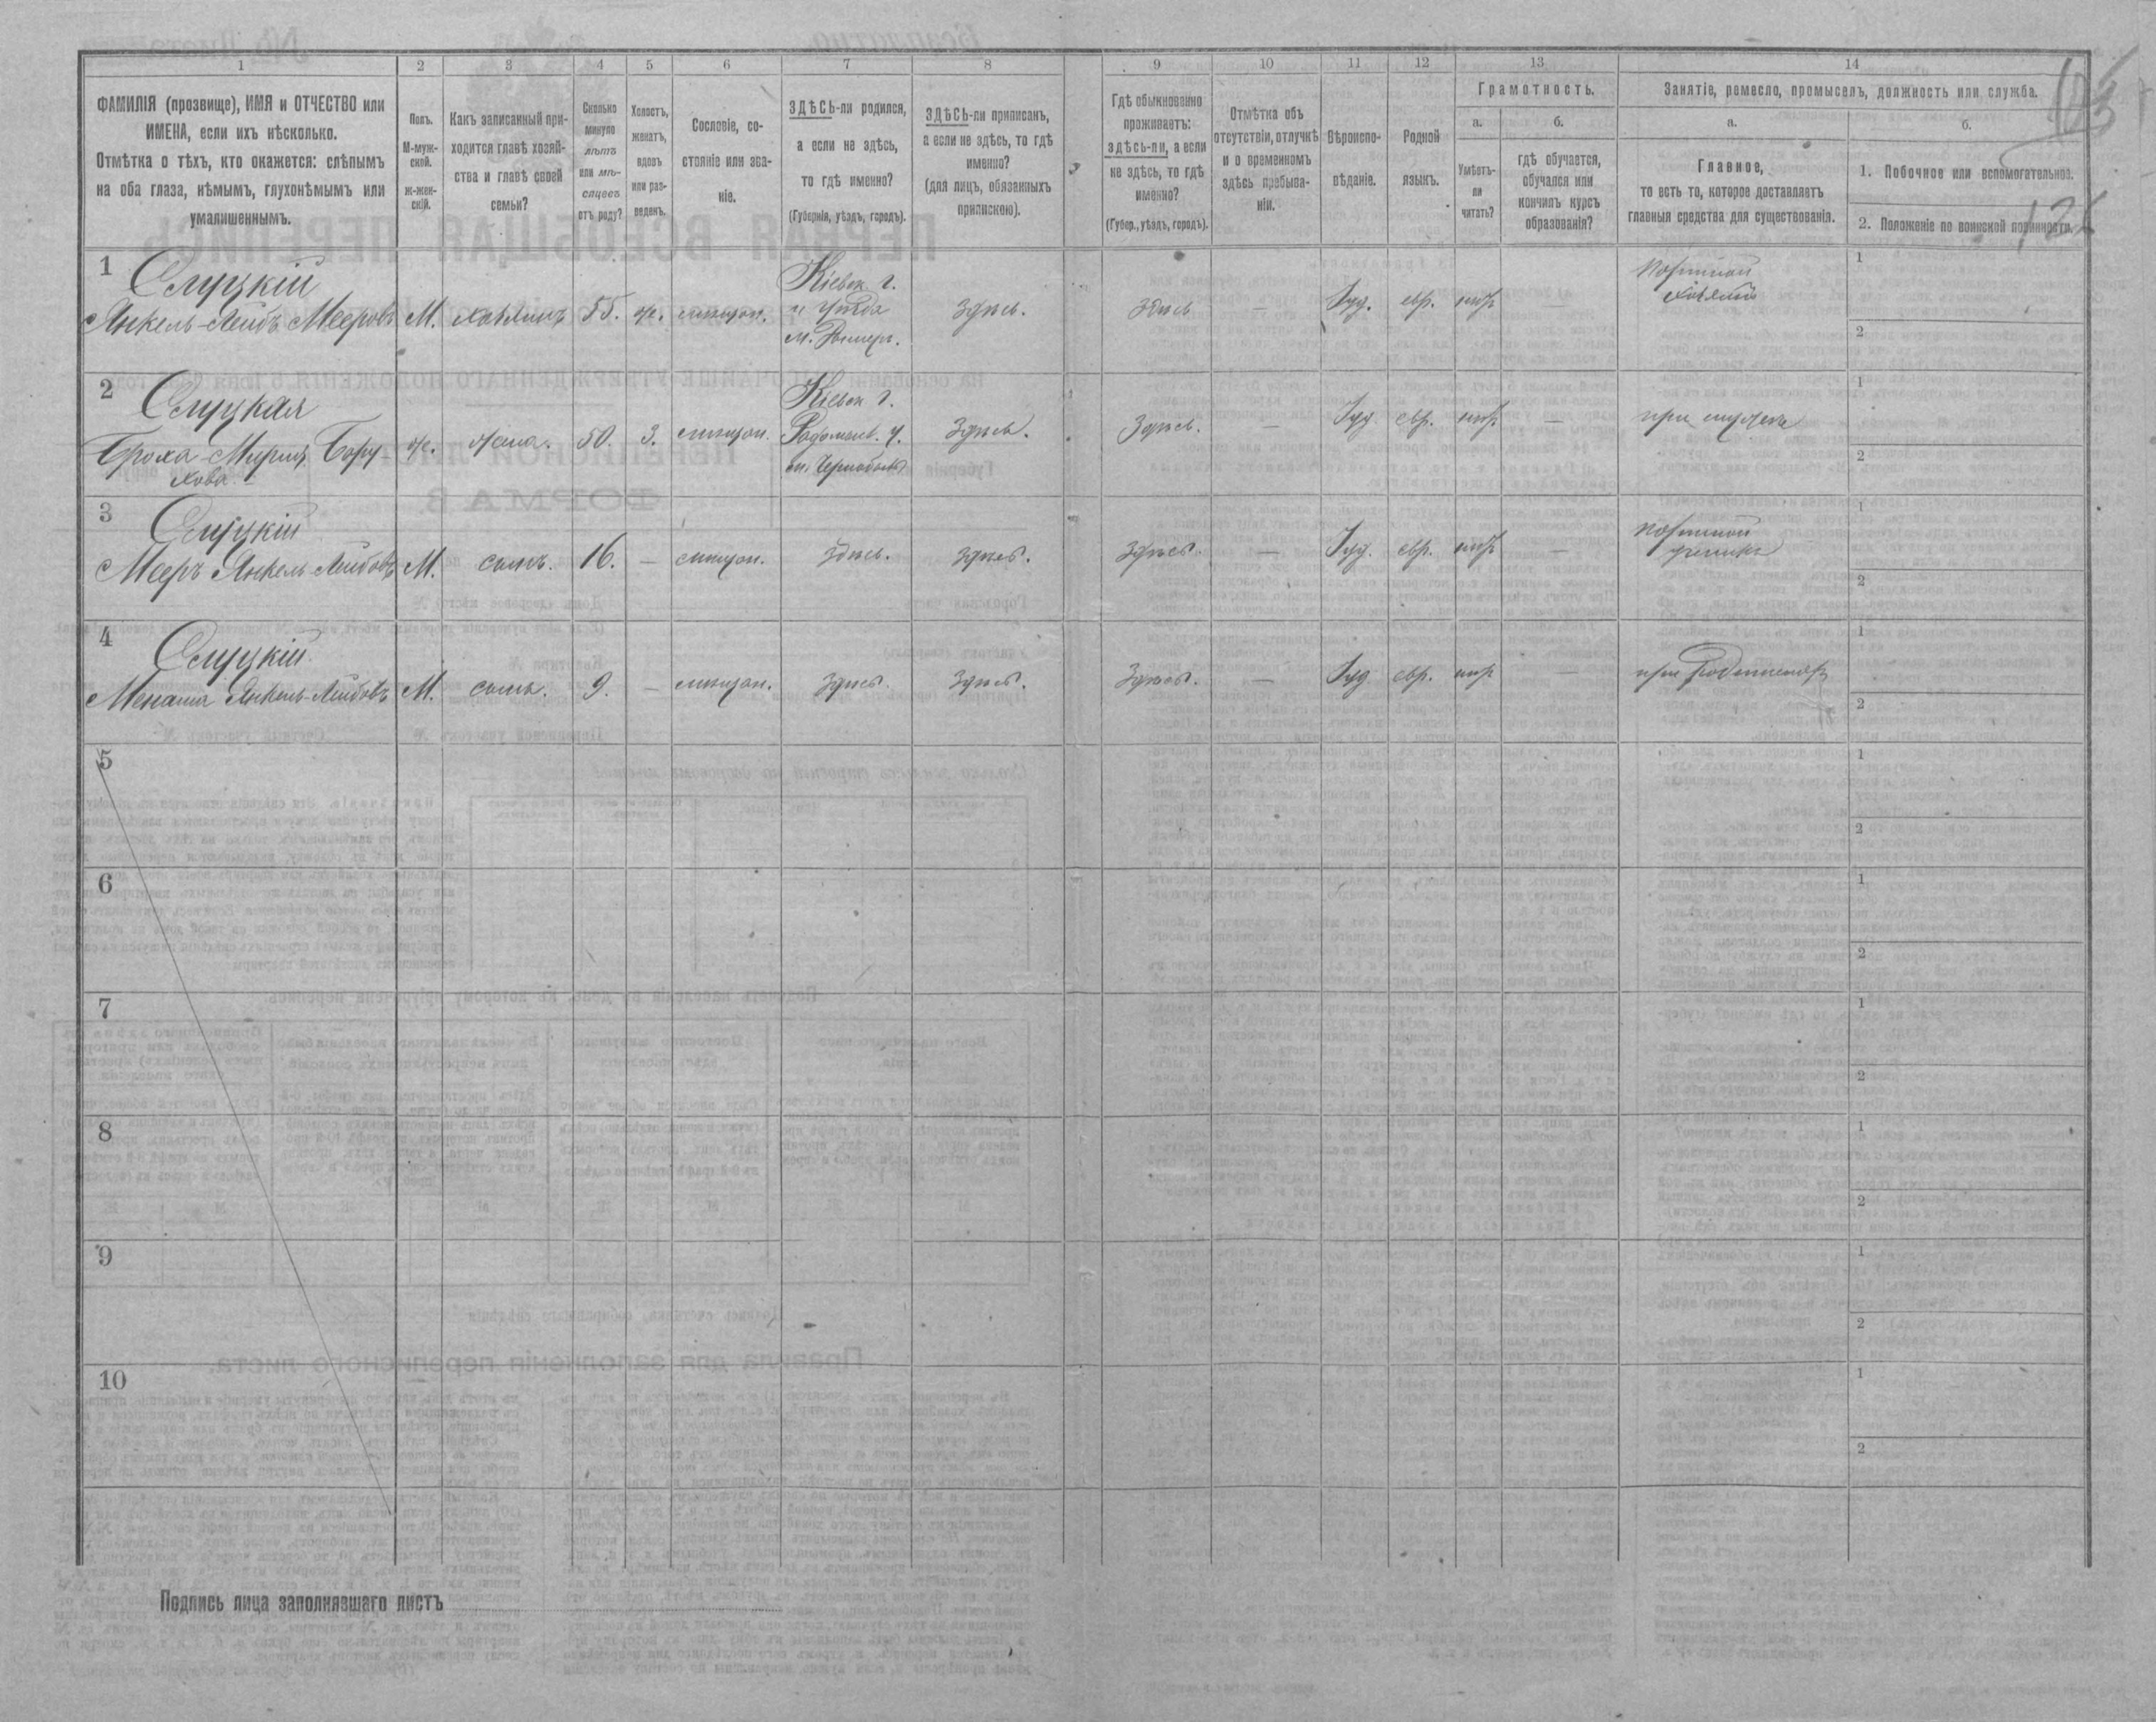 1 2 3 4 5 6 7 8 9 10 11 12 13 14
ФАМИЛІЯ (прозвище), ИМЯ и ОТЧЕСТВО или
ИМЕНА, если ихъ нѣсколько.
Отмѣтка о тѣхъ, кто окажется: слѣпымъ
на оба глаза, нѣмымъ, глухонѣмымъ или
умалишеннымъ.
Полъ.
М-муж-
ской.
Ж-жен-
скій.
Какъ записанный при-
ходится главѣ хозяй-
ства и главѣ своей
семьи?
Сколько
минуло
лѣтъ
или мѣ-
сяцевъ
отъ роду?
Холостъ,
женатъ,
вдовъ
или раз-
веденъ.
Сословіе, со-
стояніе или зва-
ніе.
ЗДѢСЬ-ли родился,
а если не здѣсь,
то гдѣ именно?
(Губернія, уѣздъ, городъ).
ЗДѢСЬ-ли приписанъ,
а если не здѣсь, то гдѣ
именно?
(для лицъ, обязанныхъ
припискою).
Гдѣ обыкновенно
проживаетъ:
здѣсь-ли, а если
не здѣсь, то гдѣ
именно?
(Губер., уѣздъ, городъ).
Отмѣтка объ
отсутствіи, отлучкѣ
и о временномъ
здѣсь пребыва-
ніи.
Вѣроиспо-
вѣданіе.
Родной
языкъ.
Грамотность.
а.
Умѣетъ-
ли
читать?
б.
гдѣ обучается,
обучался или
кончилъ курсъ
образованія?
Занятіе, ремесло, промыселъ, должность или служба.
а.
Главное,
то есть то, которое доставляетъ
главныя средства для существованія.
б.
1. Побочное или вспомогательное.
2. Положеніе по воинской повинности.
1
Слуцкій
Янкель-Лейбъ Мееровъ
М.
хозяинъ
55.
ж.
мѣщан.
Кіевск г.
и уѣзда
м. Дымеръ.
Здѣсь.
Здѣсь
—
Іуд.
евр.
Портной
хозяинъ
1
2
2
Слуцкая
Броха-Мирия Бору
хова
ж.
жена.
50.
З.
мѣщан.
Кіевск г.
Радомыс. у.
м. Чернобыль
Здѣсь.
Здѣсь.
—
Іуд
евр.
—
при мужѣ
1
2
3
Слуцкій
Мееръ Янкель-Лейбовъ
М.
сынъ.
16.
—
мѣщан.
здѣсь.
здѣсь.
Здѣсь.
—
Іуд.
евр.
—
портной
ученикъ
1
2
4
Слуцкій
Менаша Янкель-Лейбовъ
М.
сынъ.
9.
—
мѣщан.
Здѣсь.
Здѣсь.
Здѣсь.
—
Іуд
евр.
—
при родителяхъ
1
2
5
1
2
6
1
2
7
1
2
8
1
2
9
1
2
10
1
2
Подпись лица заполнявшаго листъ